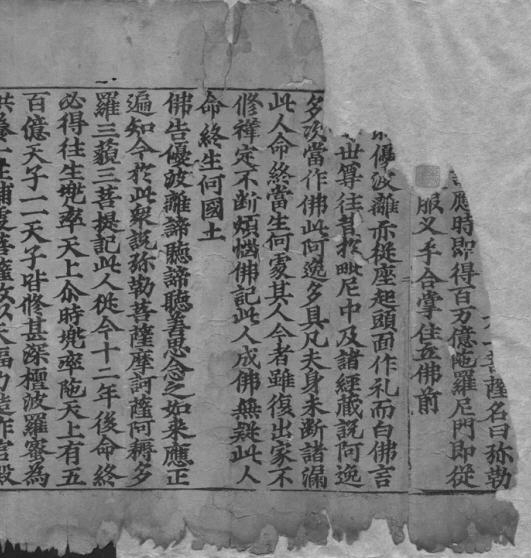 菩薩名曰弥勒
應時即得百万億陁羅尼門即從
服叉手合掌住立佛前
優波離亦從座起頭面作礼而白佛言
世尊往昔扵毗尼中及諸經藏說阿逸
多次當作佛此阿逸多具凡夫身未断諸漏
此人命終當生何處其人今者雖復出家不
修禪定不断煩惱佛記此人成佛無疑此人
命終生何國土
佛告優波離諦聽諦聽善思念之如来應正
遍知今扵此衆說弥勒菩薩摩訶薩阿耨多
羅三藐三菩提記此人從今十二年後命終
必得往生兜率天上尒時兜率陁天上有五
百億天子一一天子皆修甚深檀波羅蜜為